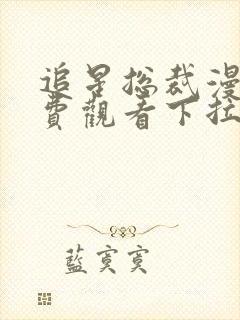 追星总裁漫
費觀看下拉
藍寞寞